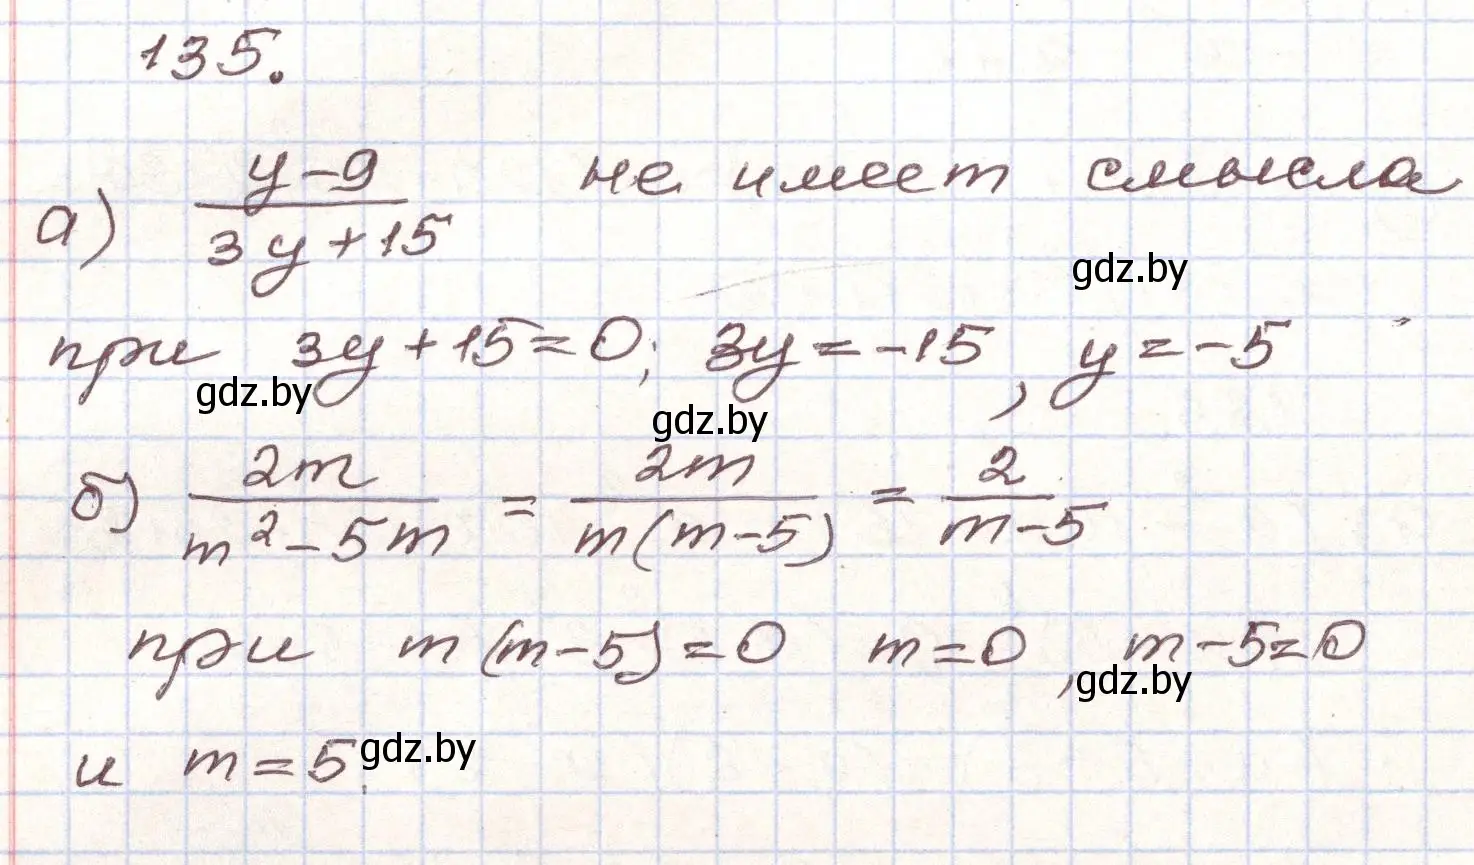 135.
а) (y-9)/(3y+15) не имеет смысла
gdz.by
при 3y+15=0; 3y=-15, y=-5
gdz.by
gdz.by
б) 2m/(m²-5m) = 2m/(m(m-5)) = 2/(m-5)
при m(m-5)=0 m=0, m-5=0
gdz.by
и m=5.
gdz.by